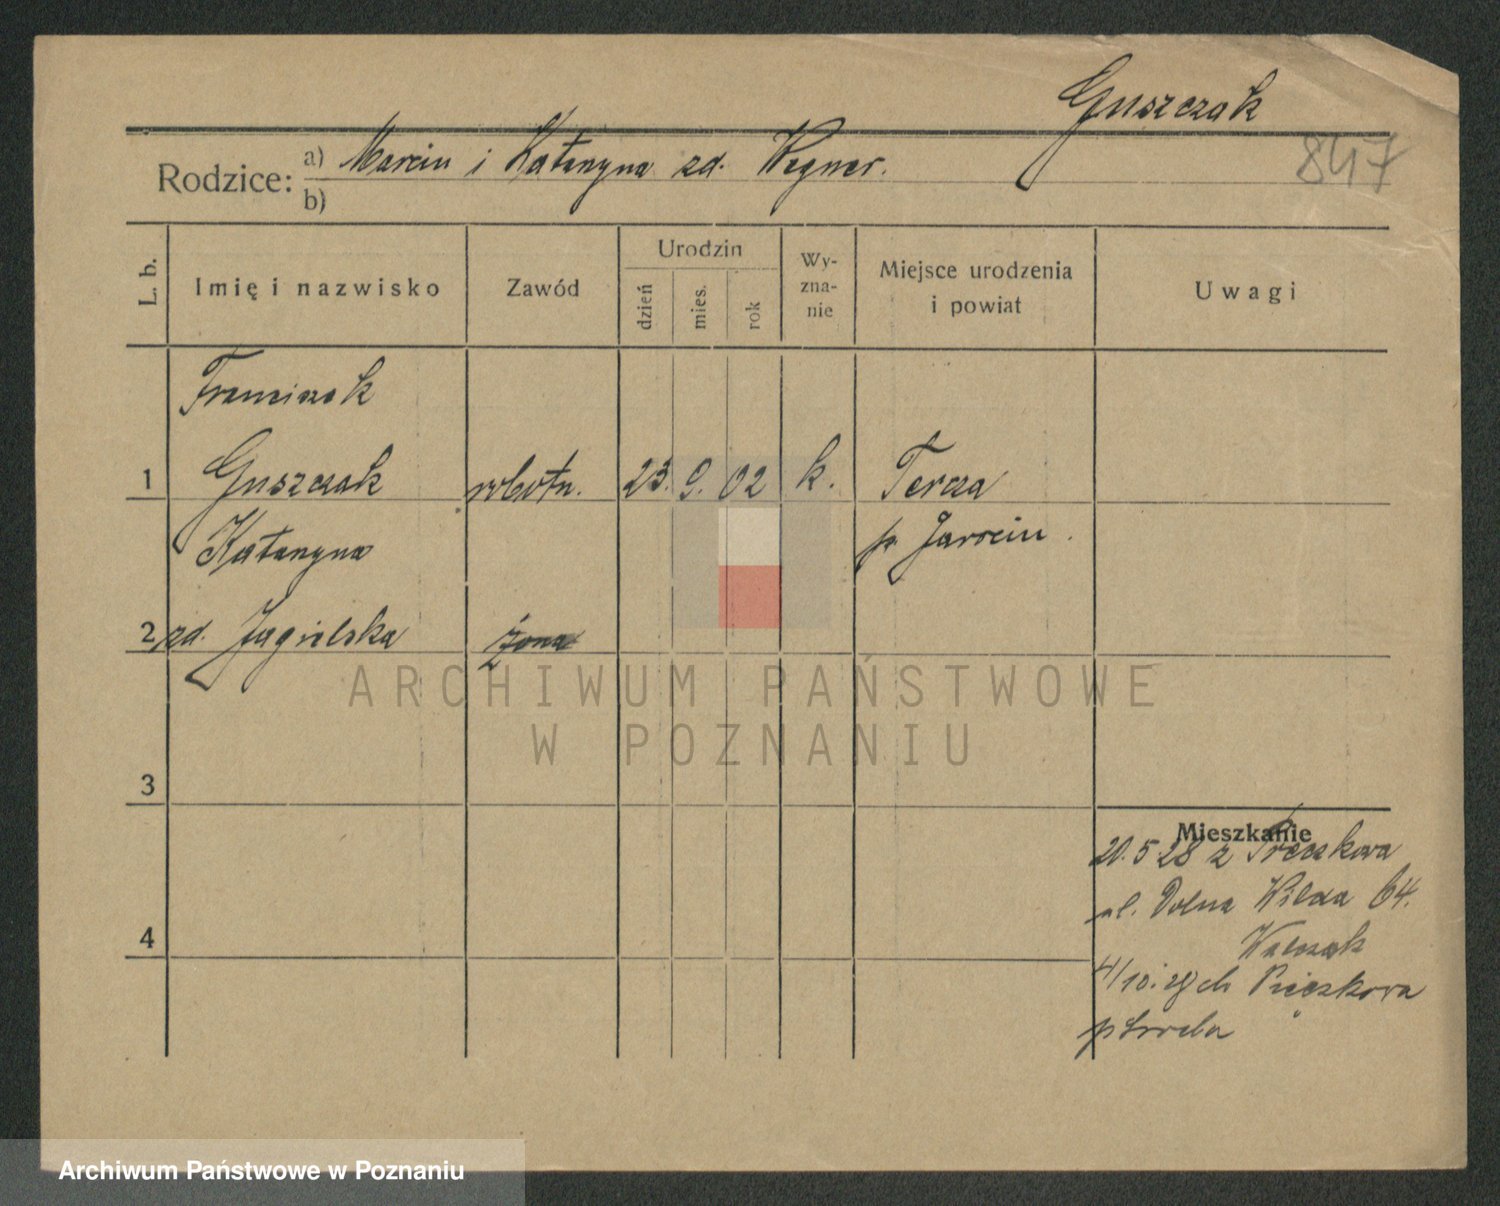 Guszczak
847
Rodzice: a) Marcin i Katarzyna zd. Wegner.
b)
L. b.
Imię i nazwisko
Zawód
Urodzin
dzień
mies.
rok
Wy-
zna-
nie
Miejsce urodzenia
i powiat
Uwagi
Franciszek
1 Guszczak robotn. 23. 9. 02 k. Tercza
p. Jarocin.
Katarzyna
2 zd. Jagielska żona
3
4
Mieszkanie
20.5 28 z
ul. Dolna Wilda 64.
Walczak
4/10. 28
p Środa
ARCHIWUM PAŃSTWOWE
W POZNANIU
Archiwum Państwowe w Poznaniu